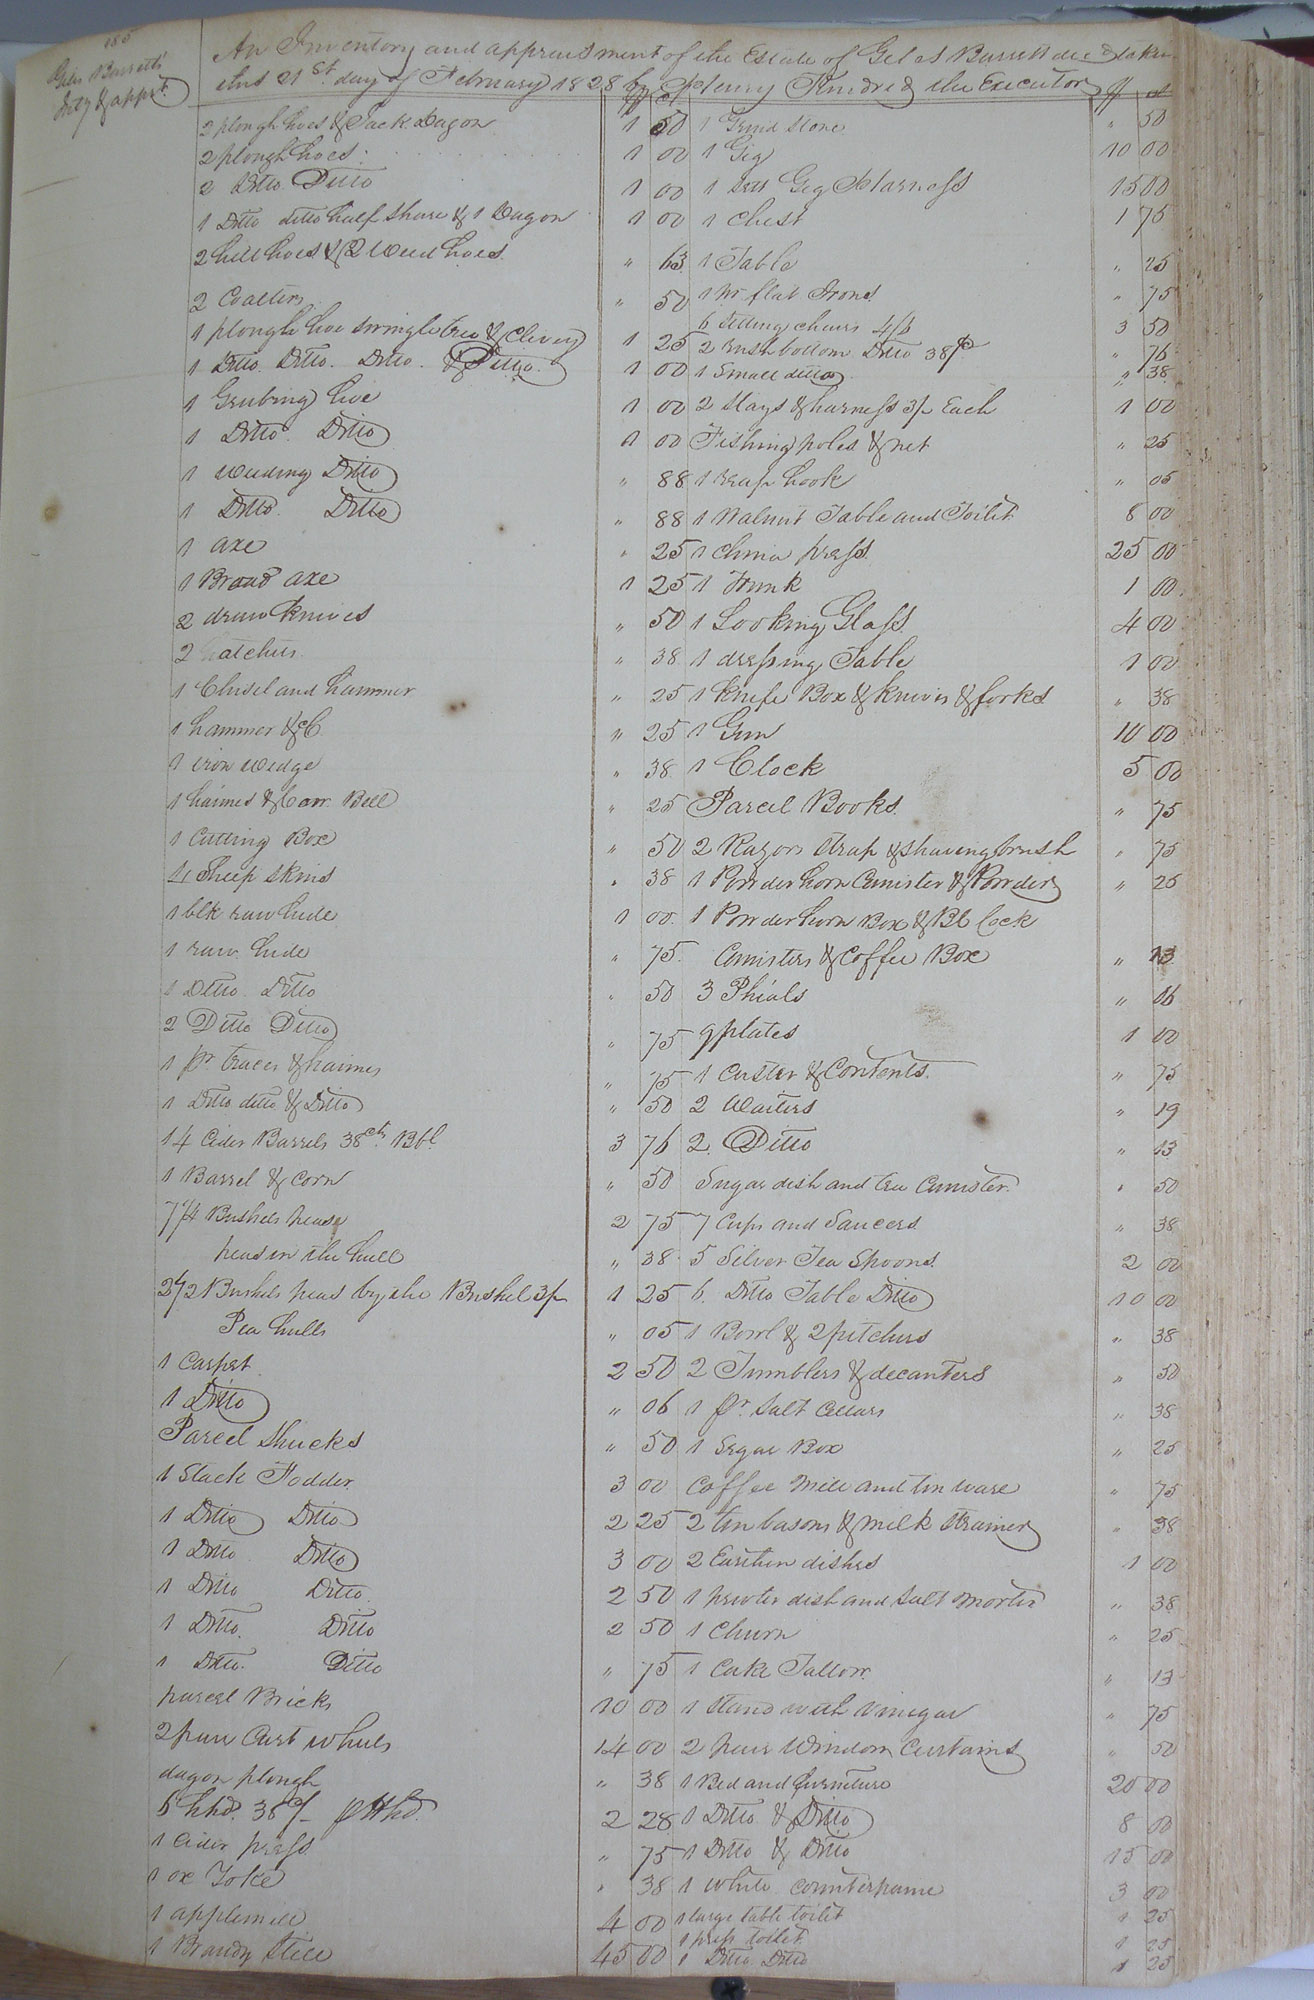 185
Giles Barretts
Invty & appst.
An Inventory and appraisment of the Estate of Giles Barrett decd taken
this 21st day of February 1828 by Henry Kindred the Executor
2 plough hoes & Jack Dagon 1 50
2 plough hoes 1 00
2 Ditto Ditto 1 00
1 Ditto ditto half Share & 1 Dagon 1 00
2 hill hoes & 2 Weed hoes " 63
2 Coalters " 50
1 plough hoe swingletree & Clevey 1 25
1 Ditto. Ditto. Ditto. & Ditto. 1 00
1 Grubing hoe 1 00
1 Ditto. Ditto 1 00
1 Weeding Ditto " 88
1 Ditto. Ditto " 88
1 axe " 25
1 Broad axe 1 25
2 draw knives " 50
2 hatchets " 38
1 Chisel and hammer " 25
1 hammer &C " 25
1 iron wedge " 38
1 haimes & Bell " 25
1 Cutting Box " 50
4 Sheep skins " 38
1 blk raw hide 1 00
1 raw hide " 75
1 Ditto. Ditto " 50
2 Ditto Ditto " 75
1 pr. traces & haimes " 75
1 Ditto ditto & Ditto " 50
14 Cider Barrels 38cts Bbl. 3 76
1 Barrel & Corn " 50
7 1/4 Bushels peas 2 75
peas in the hull " 38
2 1/2 Bushels peas by the Bushel 3/ 1 25
Pea hulls " 05
1 Carpet 2 50
1 Ditto " 06
Parcel Shucks " 50
1 Stack Fodder 3 00
1 Ditto Ditto 2 25
1 Ditto Ditto 3 00
1 Ditto Ditto 2 50
1 Ditto. Ditto 2 50
1 Ditto. Ditto " 75
parcel Bricks 10 00
2 pair Cart wheels 14 00
dagon plough " 38
6 hhd. 38c/ pr Hhd. 2 28
1 Cider press " 75
1 ox Yoke " 38
1 applemill 4 00
1 Brandy Still 45 00
1 Grind Stone " 50
1 Gig 10 00
1 Sett Gig Harness 15 00
1 Chest 1 75
1 Table " 25
1 pr flat Irons " 75
6 Setting chairs 3 50
2 rush bottom Ditto 38c " 76
1 Small ditto " 38
2 Slays & harness 3/ Each 1 00
Fishing poles & net " 25
1 reap hook " 05
1 Walnut Table and Toilet 8 00
1 China press 25 00
1 Trunk 1 00
1 Looking Glass 4 00
1 dressing Table 1 00
1 knife Box & knives & forks " 38
1 Gun 10 00
1 Clock 5 00
Parcel Books " 75
2 Razors Strap & Shaving brush " 75
1 Powder horn Canister & Powder " 25
1 Powder horn Box & Bl lock
Canisters & Coffee Box " 13
3 Phials " 06
9 plates 1 00
1 Caster & Contents " 75
2 Waiters " 19
2 Ditto " 13
Sugar dish and tea Canister " 50
7 Cups and Saucers " 38
5 Silver Tea Spoons 2 00
6 Ditto Table Ditto 10 00
1 Bowl & 2 pitchers " 38
2 Tumblers & decanters " 50
1 pr. Salt Cellars " 38
1 Segar Box " 25
Coffee Mill and tin ware " 75
2 tin basons & milk Strainer " 38
2 Earthen dishes 1 00
1 pewter dish and Salt Morter " 38
1 Churn " 25
1 Cake Tallow " 13
1 Stand with Vinegar " 75
2 pair Window Curtains " 50
1 Bed and furniture 20 00
1 Ditto & Ditto 8 00
1 Ditto & Ditto 15 00
1 White Counterpaine 3 00
1 large table toilet 1 25
1 press toilet 1 25
1 Ditto Ditto 1 25